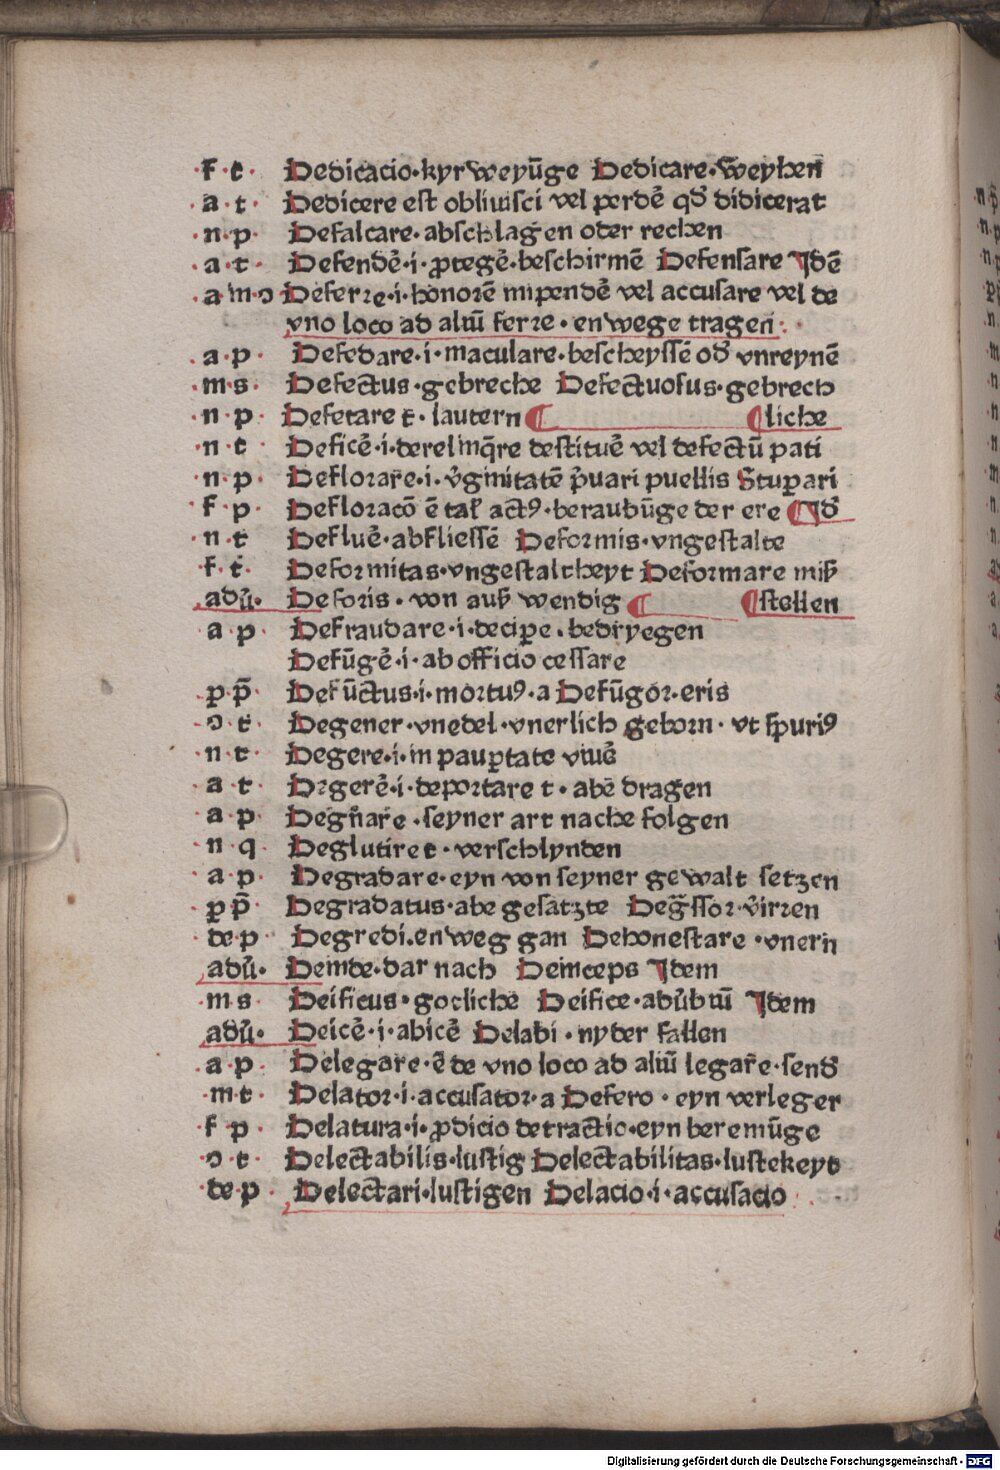 ·f·t· Dedicacio·kyrweyūge Dedicare·weyhen̄
·a·t· Dedicere est obliuisci vel perdē qđ didicerat
·n·p· Defalcare·abschlagen oder rechen
·a·t· Defendē·i·ꝓtegē·beschirmē Defensare Jdē
·a·m·ɔ Deferre·i·honorē inipendē vel accusare vel de
vno loco ad aliū ferre·enwege tragen:·
·a·p· Defedare·i·maculare·bescheyssē ođ vnreynē
·m·s· Defectus·gebreche Defectuosus·gebrech
·n·p· Defetare t·lautern ¶ ¶liche
·n·t· Deficē·i·derelinq̄re destituē vel defectū pati
·n·p· Deflorare·i·v̓ginitatē p̓uari puellis Stuprari
·f·p· Defloracō ē tal̓ actꝰ·beraubūge der ere ¶Jđ
·n·t· Defluē·abfliessē Deformis·vngestalte
·f·t· Deformitas·vngestaltheyt Deformare miß
·adū· Deforis·von auß wendig ¶ ¶stellen
·a·p· Defraudare·i·deciꝑe·bedryegen
Defūgē·i·ab officio cessare
·p·p̄· Defūctus·i·mortuꝰ·a Defūgor·eris
·ɔ·t· Degener·vnedel·vnerlich geborn·vt spuriꝰ
·n·t· Degere·i·in pauꝑtate viuē
·a·t· Drgerē·i·deportare t·abē dragen
·a·p· Degn̄are·seyner art nache folgen
·n·q· Deglutire t·verschlynden
·a·p· Degradare·eyn von seyner gewalt setzen
·p·p̄· Degradatus·abe gesatzte Deg̃ssor·v̓irren
·de·p Degredi·enweg gan Dehonestare·vnern
·adū· Deinde·dar nach Deinceps Jdem
·m·s· Deificus·gotliche Deifice·adūbiū Jdem
·adū· Deicē·i·abicē Delabi·nyder fallen
·a·p· Delegare·ē de vno loco ad aliū legare·senđ
·m·t· Delator·i·accusator·a Defero·eyn verleger
·f·p· Delatura·i·ꝓdicio detractio·eyn beremūge
·ɔ·t· Delectabilis·lustig Delectabilitas·lustekeyt
·de·p· Delectari·lustigen Delacio·i·accusacio
Digitalisierung gefördert durch die Deutsche Forschungsgemeinschaft - DFG